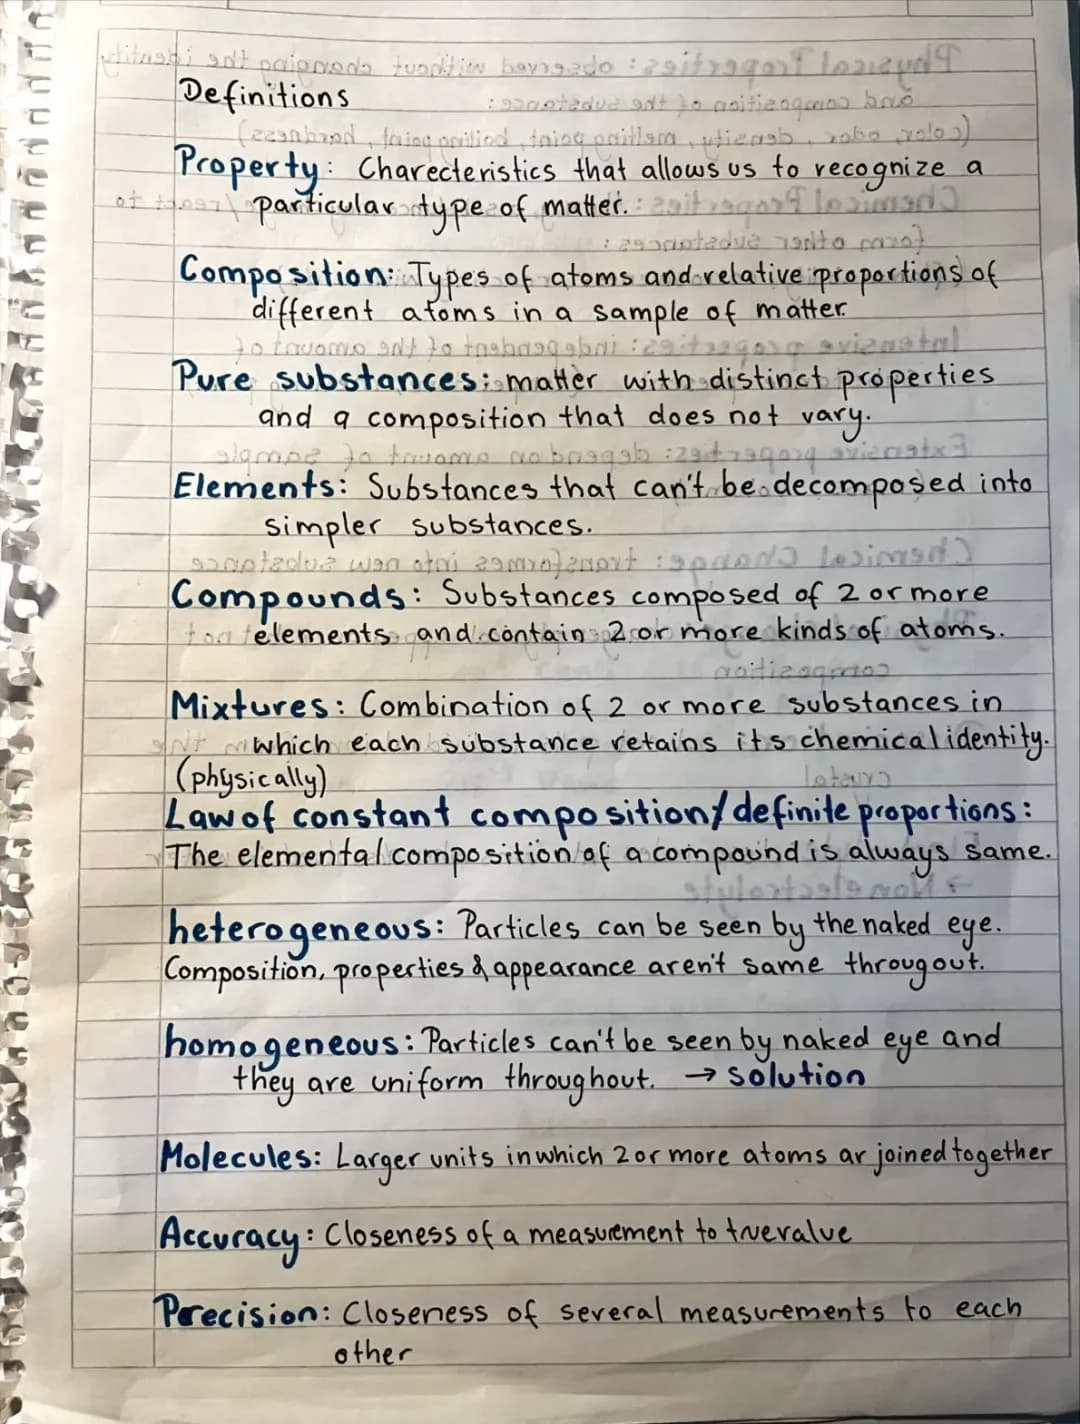 Definitions
Property: Charecteristics that allows us to recognize a
particular type of matter.
Composition: Types of atoms and relative proportions of
different atoms in a sample of matter.
Pure substances: matter with distinct properties
and a composition that does not vary.
Elements: Substances that can't be decomposed into
simpler substances.
Compounds: Substances composed of 2 or more
elements and contain 2 or more kinds of atoms.
Mixtures: Combination of 2 or more substances in
which each substance retains its chemical identity.
(physically)
Law of constant composition/definite proportions:
The elemental composition of a compound is always same.
heterogeneous: Particles can be seen by the naked eye.
Composition, properties & appearance aren't same througout.
homogeneous: Particles can't be seen by naked eye and
they are uniform throughout. → solution
Molecules: Larger units in which 2 or more atoms ar joined together
Accuracy: Closeness of a measurement to true value
Precision: Closeness of several measurements to each
other